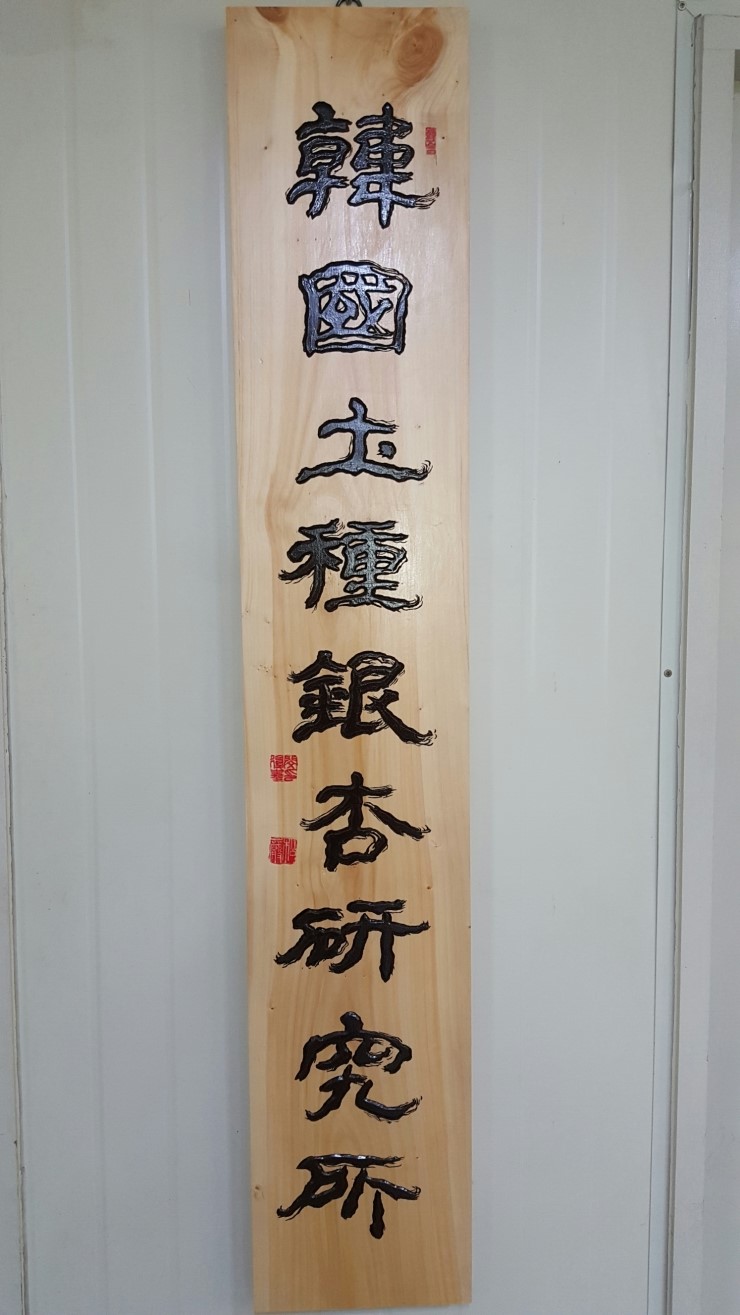 韓國土種銀杏硏究所